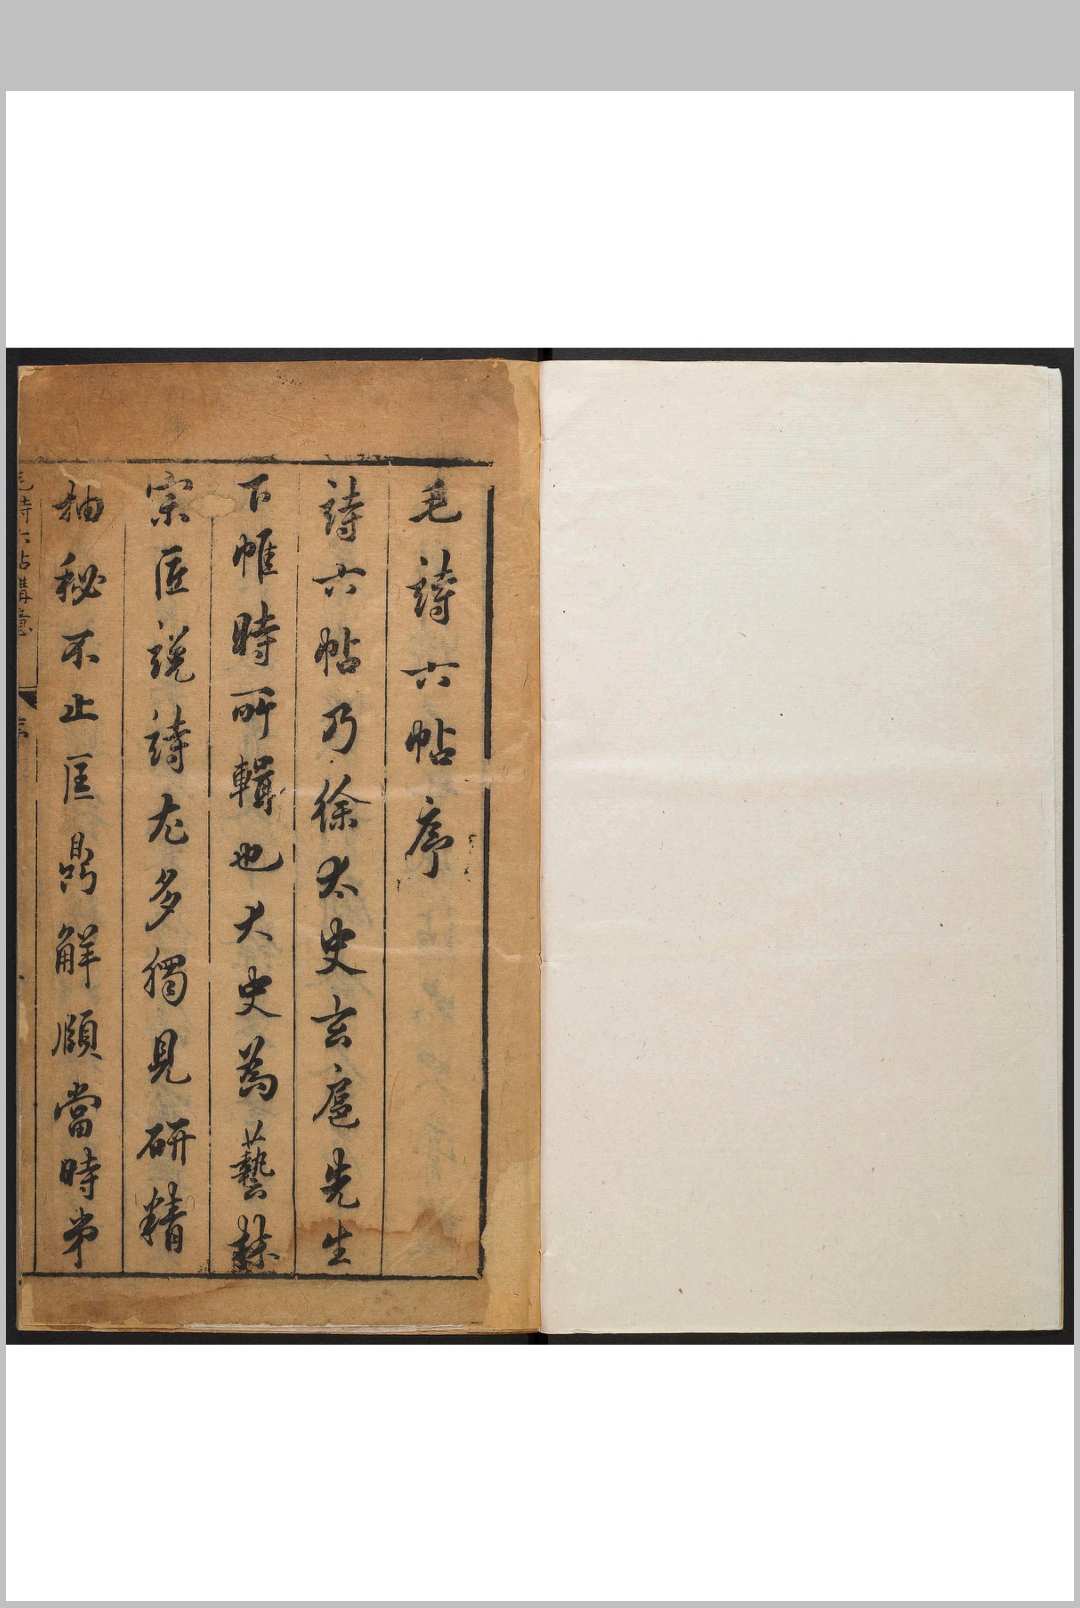 毛詩六帖序
詩六帖乃徐太史玄扈先生
下帷時所輯也太史為藝林
宗匠說詩尤多獨見研精
抽秘不止匡鼎解頤當時弟
毛詩六帖講意
序